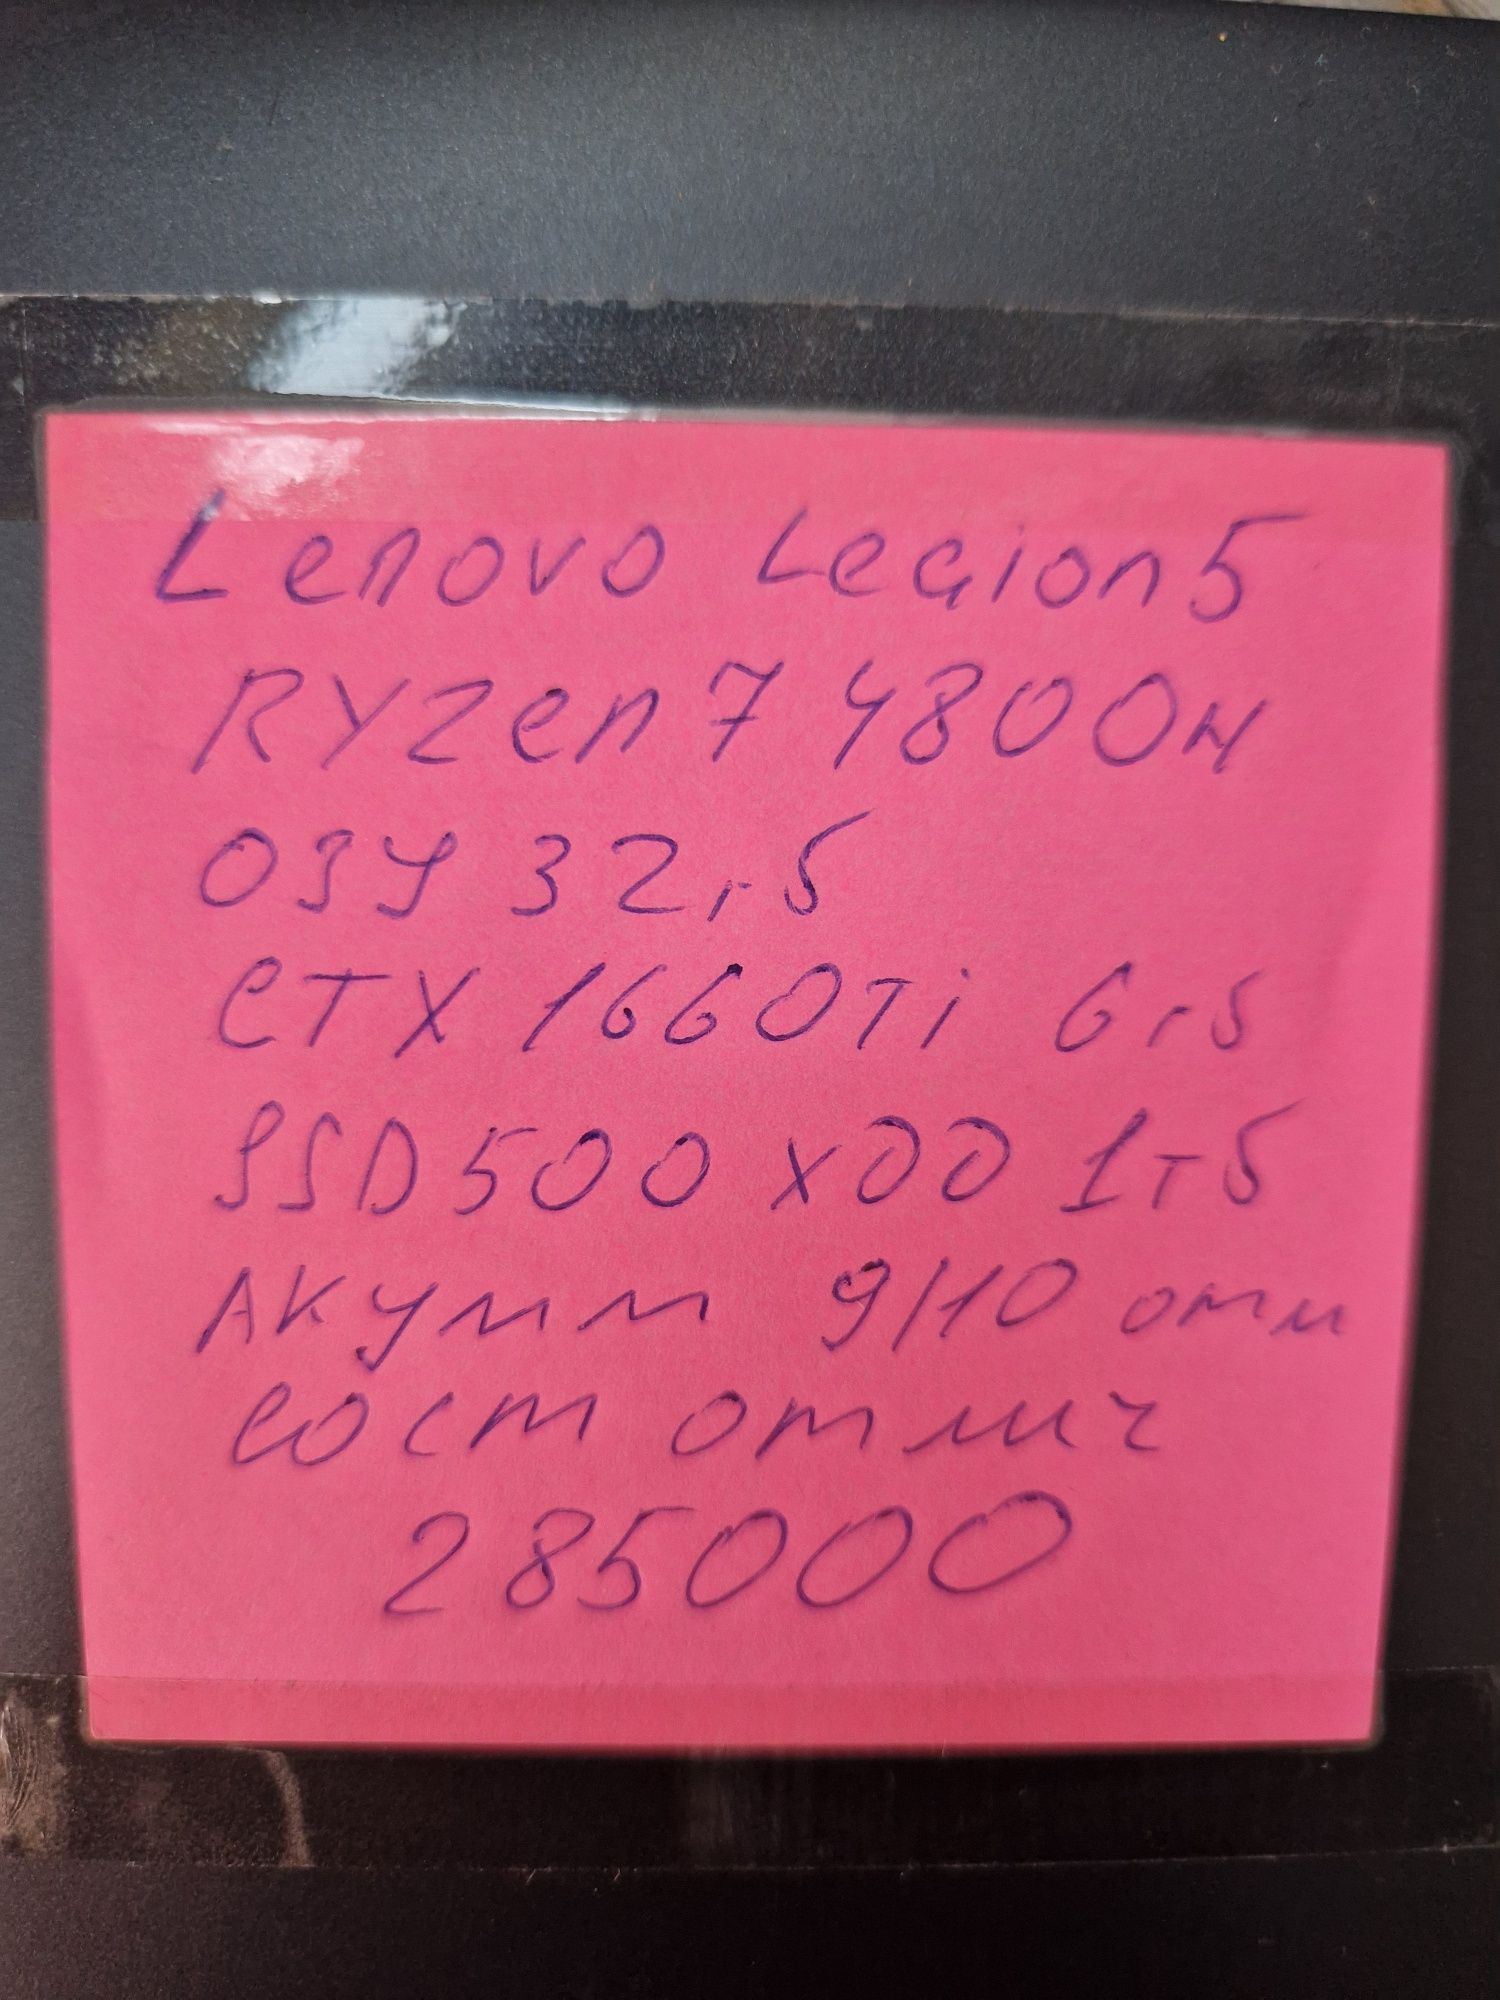 Lenovo Legion 5
RYZen 7 4800н
ОЗУ 32гб
GTX 1660Ti 6гб
SSD 500 HDD 1тб
Акумм 9/10 отл
сост отлич
285000